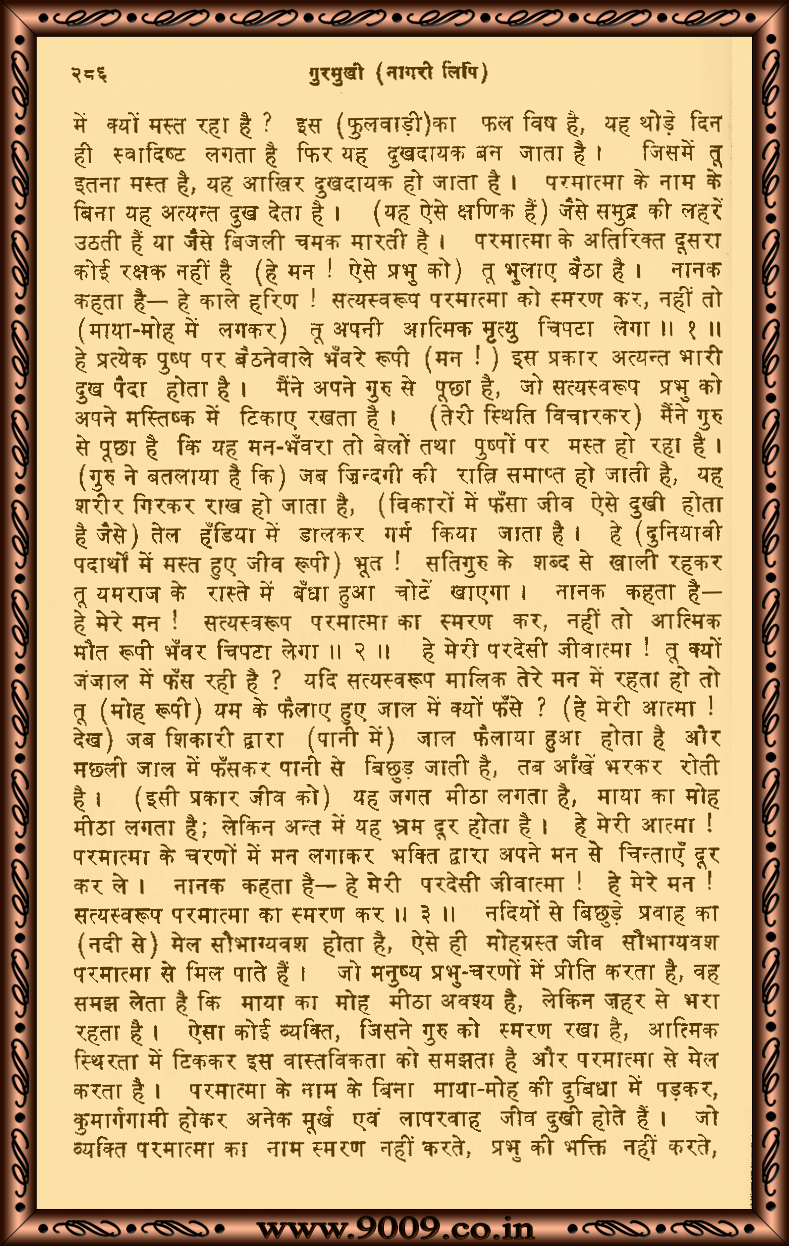 २८६ गुरमुखी (नागरी लिपि)
में क्यों मस्त रहा है ? इस (फुलवाड़ी)का फल विष है, यह थोड़े दिन
ही स्वादिष्ट लगता है फिर यह दुखदायक बन जाता है । जिसमें तू
इतना मस्त है, यह आखिर दुखदायक हो जाता है । परमात्मा के नाम के
बिना यह अत्यन्त दुख देता है । (यह ऐसे क्षणिक हैं) जैसे समुद्र की लहरें
उठती हैं या जैसे बिजली चमक मारती है । परमात्मा के अतिरिक्त दूसरा
कोई रक्षक नहीं है (हे मन ! ऐसे प्रभु को) तू भुलाए बैठा है । नानक
कहता है— हे काले हरिण ! सत्यस्वरूप परमात्मा को स्मरण कर, नहीं तो
(माया-मोह में लगकर) तू अपनी आत्मिक मृत्यु चिपटा लेगा ॥ १ ॥
हे प्रत्येक पुष्प पर बैठनेवाले भँवरे रूपी (मन ! ) इस प्रकार अत्यन्त भारी
दुख पैदा होता है । मैंने अपने गुरु से पूछा है, जो सत्यस्वरूप प्रभु को
अपने मस्तिष्क में टिकाए रखता है । (तेरी स्थिति विचारकर) मैंने गुरु
से पूछा है कि यह मन-भँवरा तो बेलों तथा पुष्पों पर मस्त हो रहा है ।
(गुरु ने बतलाया है कि) जब ज़िन्दगी की रात्रि समाप्त हो जाती है, यह
शरीर गिरकर राख हो जाता है, (विकारों में फँसा जीव ऐसे दुखी होता
है जैसे) तेल हँडिया में डालकर गर्म किया जाता है । हे (दुनियावी
पदार्थों में मस्त हुए जीव रूपी) भूत ! सतिगुरु के शब्द से खाली रहकर
तू यमराज के रास्ते में बँधा हुआ चोटें खाएगा । नानक कहता है—
हे मेरे मन ! सत्यस्वरूप परमात्मा का स्मरण कर, नहीं तो आत्मिक
मौत रूपी भँवर चिपटा लेगा ॥ २ ॥ हे मेरी परदेसी जीवात्मा ! तू क्यों
जंजाल में फँस रही है ? यदि सत्यस्वरूप मालिक तेरे मन में रहता हो तो
तू (मोह रूपी) यम के फैलाए हुए जाल में क्यों फँसे ? (हे मेरी आत्मा !
देख) जब शिकारी द्वारा (पानी में) जाल फैलाया हुआ होता है और
मछली जाल में फँसकर पानी से बिछुड़ जाती है, तब आँखें भरकर रोती
है । (इसी प्रकार जीव को) यह जगत मीठा लगता है, माया का मोह
मीठा लगता है; लेकिन अन्त में यह भ्रम दूर होता है । हे मेरी आत्मा !
परमात्मा के चरणों में मन लगाकर भक्ति द्वारा अपने मन से चिन्ताएँ दूर
कर ले । नानक कहता है— हे मेरी परदेसी जीवात्मा ! हे मेरे मन !
सत्यस्वरूप परमात्मा का स्मरण कर ॥ ३ ॥ नदियों से बिछुड़े प्रवाह का
(नदी से) मेल सौभाग्यवश होता है, ऐसे ही मोहग्रस्त जीव सौभाग्यवश
परमात्मा से मिल पाते हैं । जो मनुष्य प्रभु-चरणों में प्रीति करता है, वह
समझ लेता है कि माया का मोह मीठा अवश्य है, लेकिन ज़हर से भरा
रहता है । ऐसा कोई व्यक्ति, जिसने गुरु को स्मरण रखा है, आत्मिक
स्थिरता में टिककर इस वास्तविकता को समझता है और परमात्मा से मेल
करता है । परमात्मा के नाम के बिना माया-मोह की दुबिधा में पड़कर,
कुमार्गगामी होकर अनेक मूर्ख एवं लापरवाह जीव दुखी होते हैं । जो
व्यक्ति परमात्मा का नाम स्मरण नहीं करते, प्रभु की भक्ति नहीं करते,
www.9009.co.in